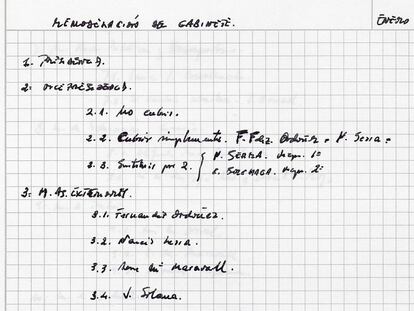 REMODELACIÓ DE GABINETE.
ENERO
1. PRESIDENCIA.
2. VICEPRESIDENCIA.
2.1. No cubrir.
2.2. Cubrir simplemente. F. Fdez. Ordóñez o N. Serra
2.3. Sustituir por 2. N. SERRA. Vicep. 1º
C. SOLCHAGA. Vicep. 2º
3. M. AS. EXTERIORES.
3.1. Fernández Ordóñez.
3.2. Narcís Serra.
3.3. José Mª Maravall.
3.4. J. Solana.